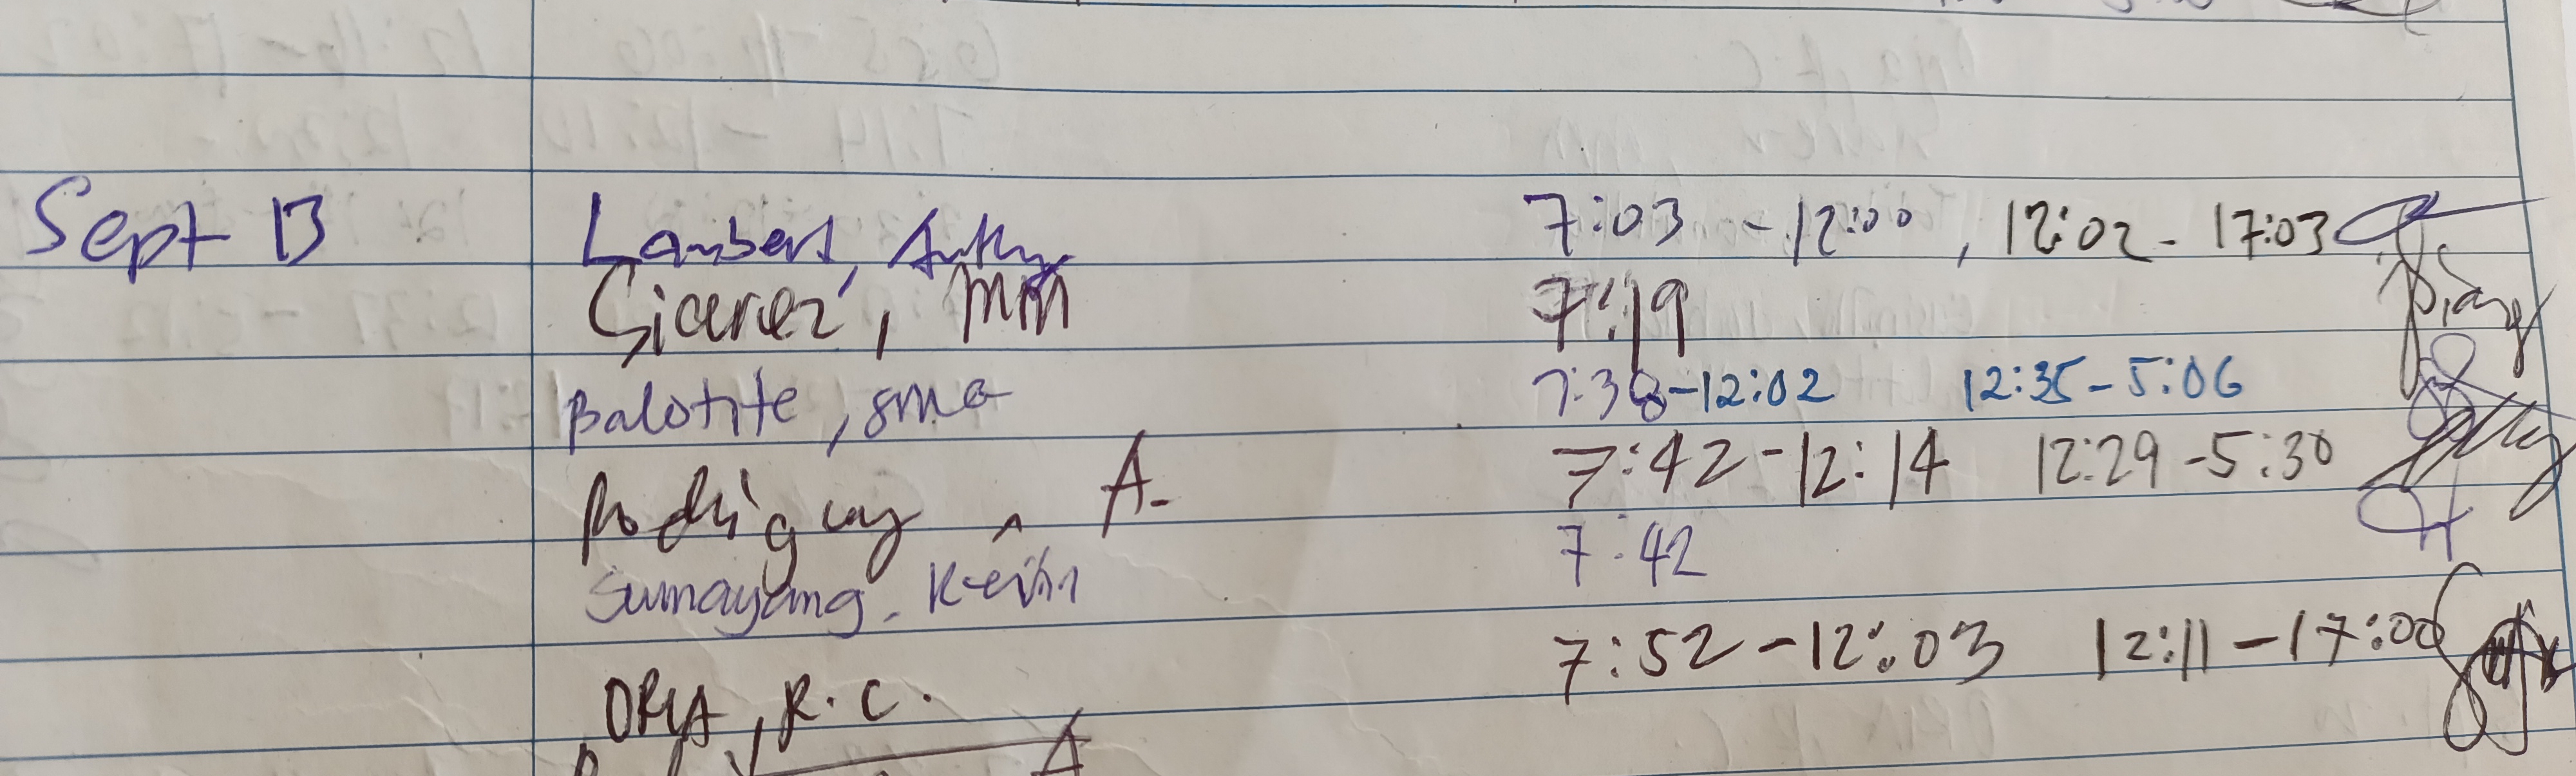 Sept 13 Lambert, Anthy 7:03 - 12:00, 12:02 - 17:03
Gicerez, MM 7:19
Balotite, sma 7:38-12:02 12:35-5:06
Rodriguez, A. 7:42-12:14 12:29-5:30
Sumayang, Kevin 7:42
ORIA, R.C. 7:52-12:03 12:11-17:00